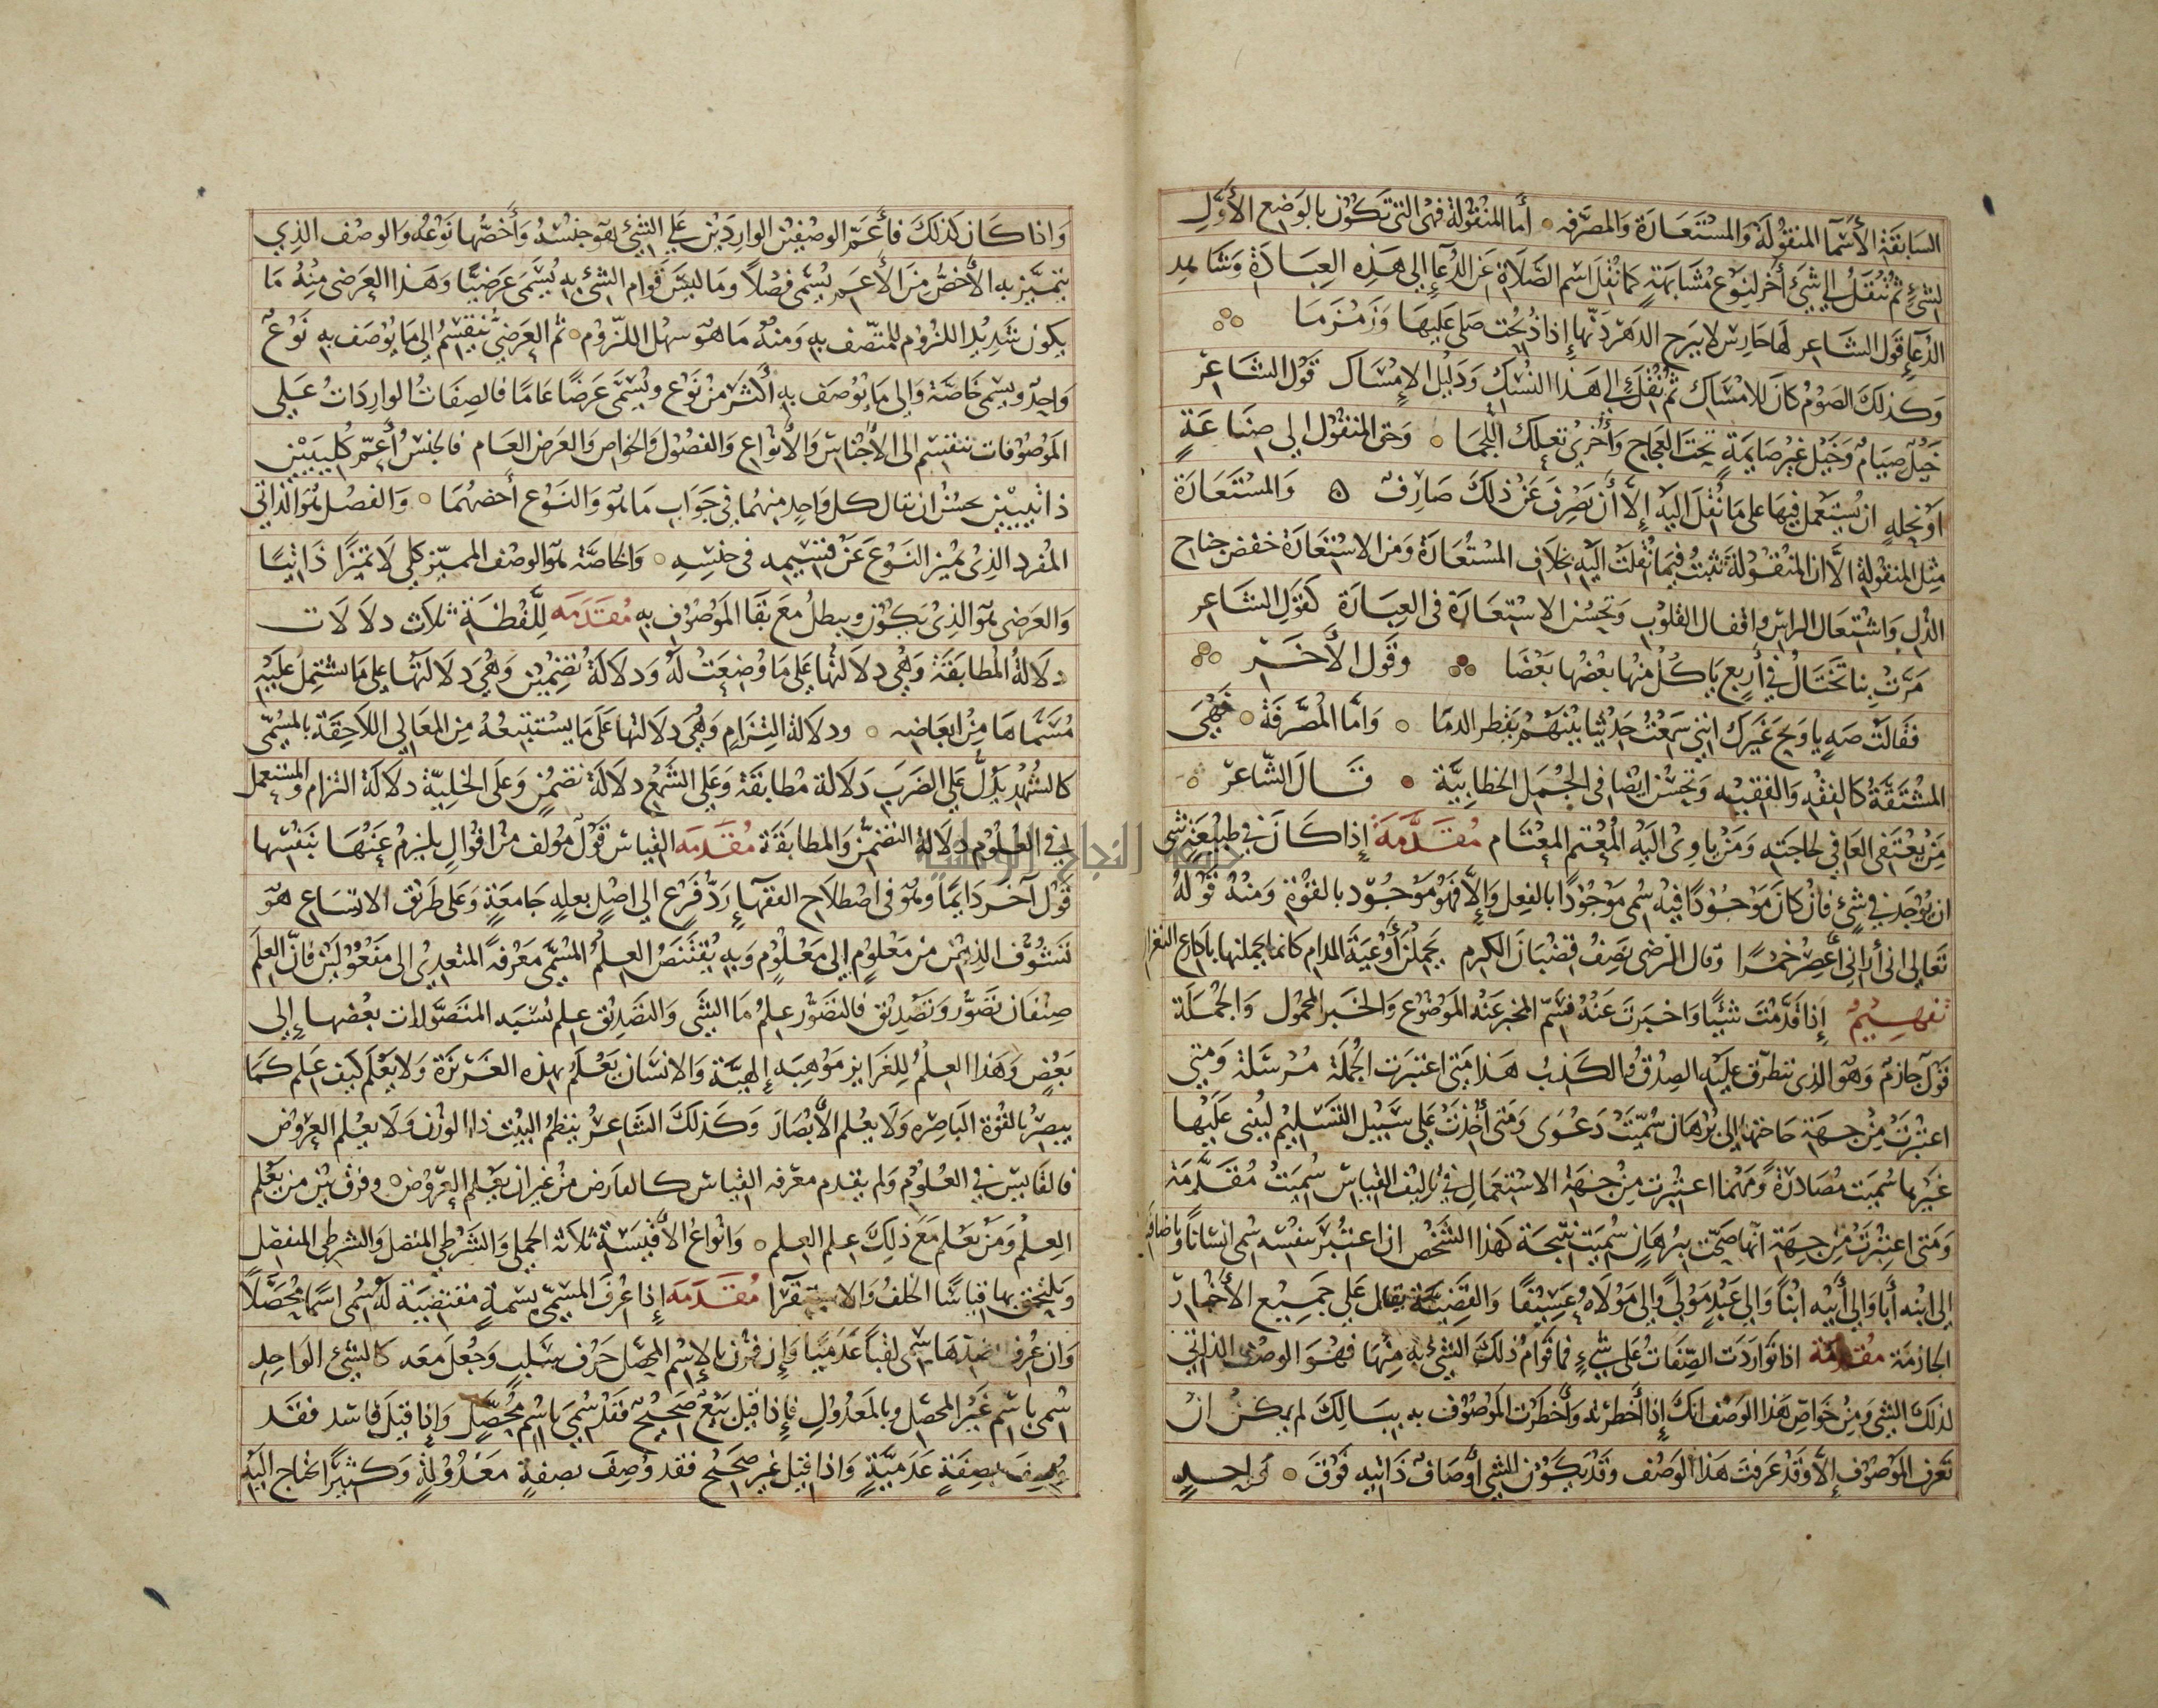 السابقة الأسما المنقولة والمستعارة والمصرفه أما المنقولة فهى التى تكون بالوضع الأول
لشئ ثم تنقل الى شئ أخر لنوع مشابهة كما نقل اسم الصلاة عن الدعآء إلى هذه العبادة وشاهد
الدعآء قول الشاعر لها حارس لا يبرح الدهر دنها إذا ذبحت صلى عليها وزمزما
وكذلك الصوم كان للامساك ثم نقل الى هذا النسك ودليل الإمساك قول الشاعر
خيل صيام وخيل غير صايمة تحت العجاج وأخرى تعلك اللجما وحق المنقول الى صناعة
او نحلة ان يستعمل فيها على ما نقل اليه إلا أن يصرف عن ذلك صارف ه والمستعارة
مثل المنقولة الا ان المنقولة تثبت فيما نقلت اليه بخلاف المستعارة ومن الاستعارة خفض جناح
الذل واشتعال الراس واقفال القلوب وتحسن الاستعارة فى العبارة كقول الشاعر
مرت بنا تختال في أربع ياكل منها بعضها بعضا وقول الأخر
فقالت صه يا ويح غيرك اننى سمعت حديثا بينهم يقطر الدما وأما المصرفة فهى
المشتقة كالفقه والفقيه وتحسن ايضا فى الجمل الخطابية قال الشاعر
من يعتفى العافي لحاجته ومن ياوى اليه المعتم المعتام مقدمة إذا كان فى طبيعة شى
ان يوجد في شئ فان كان موجودا فيه سمى موجودا بالفعل وإلا فهو موجود بالقوة ومنه قوله
تعالى انى أرانى أعصر خمرا وقال الرضى يصف قضبان الكرم يحملن أوعية المدام كانما يحملنها باكارع النغران
تفهيم إذا قدمت شيئا واخبرت عنه فسم المخبر عنه الموضوع والخبر المحمول والجملة
قول جازم وهو الذى تتطرق عليه الصدق والكذب هذا متى اعتبرت الجملة مرسلة ومتى
اعتبرت من جهة حاجتها إلى برهان سميت دعوى ومتى أخذت على سبيل التسليم ليبنى عليها
غيرها سميت مصادرة ومهما اعتبرت من جهة الاستعمال في تاليف القياس سميت مقدمة
ومتى اعتبرت من جهة انها صحت ببرهان سميت نتيجة كهذا الشخص ان اعتبر بنفسه سمى انسانا وباضافته
إلى ابنه أبا وإلى أبيه ابنا والى عبد مولى وإلى مولاه عتيقا والقضية تقال على جميع الأخبار
الجازمة مقدمة اذا تواردت الصفات على شئ فما قوام ذلك الشئ به منها فهو الوصف الذاتي
لذلك الشي ومن خواص هذا الوصف انك إذا أخطرته وأخطرت الموصوف به ببالك لم يمكن ان
تعرف الموصوف إلا وقد عرفت هذا الوصف وقد يكون للشي أوصاف ذاتيه فوق واحد
واذا كان كذلك فأعم الوصفين الواردين على الشئ هو جنسه وأخصها نوعه والوصف الذي
يتميز به الأخص من الأعم يسمى فصلا وما ليس قوام الشئ به يسمى عرضيا وهذا العرضى منه ما
يكون شديد اللزوم للمتصف به ومنه ما هو سهل اللزوم ثم العرضى ينقسم إلى ما يوصف به نوع
واحد ويسمى خاصة وإلى ما يوصف به أكثر من نوع ويسمى عرضا عاما فالصفات الواردات على
الموصوفات تنقسم الى الأجناس والأنواع والفصول والخواص والعرض العام فالجنس أعم كليين
ذاتيين يحسن ان تقال كل واحد منهما في جواب ما هو والنوع أخصهما والفصل هو الذاتي
المفرد الذى يميز النوع عن قسيمه فى جنسه والخاصة هو الوصف المميز كلى لا تميزا ذاتيا
والعرضى هو الذى يكون ويبطل مع بقا الموصوف به مقدمه للفظة ثلاث دلالات
دلالة المطابقة وهي دلالتها على ما وضعت له ودلالة تضمين وهى دلالتها على ما تشتمل عليه
مسماها من ابعاضه ودلالة التزام وهى دلالتها على ما يستتبعه من المعاني اللاحقة بالمسمى
كالشهد يدل على الضرب دلالة مطابقة وعلى الشمع دلالة تضمن وعلى الخلية دلالة التزام والمستعمل
في العلوم دلالة التضمن والمطابقة مقدمه القياس قول مولف من اقوال يلزم عنها بنفسها
قول آخر دايما وهو فى اصطلاح الفقهآء رد فرع الى اصل بعلة جامعة وعلى طريق الاتساع هو
تشوف الذهن من معلوم إلى معلوم وبه يقتنص العلم المسمى معرفة المتعدى الى مفعولين فان العلم
صنفان تصور وتصديق فالتصور علم ما الشى والتصديق علم نسبة المتصورات بعضها إلى
بعض وهذا العلم للغرايز موهبة إلهية والانسان يعلم بهذه الغريزة ولا يعلم كيف علم كما
يبصر بالقوة الباصره ولا يعلم الأبصار وكذلك الشاعر ينظم البيت ذا الوزن ولا يعلم العروض
فالقايس في العلوم ولم يقدم معرفة القياس كالعارض من غير ان يعلم العروض وفرق بين من يعلم
العلم ومن يعلم مع ذلك علم العلم وانواع الأقيسة ثلاثة الحملي والشرطي المتصل والشرطي المنفصل
ويلتحق بها قياسا الخلف والاستقرا مقدمه إذا عرف المسمى بسمة مقتضية له سمى اسما محصلا
وان عرف بضدها سمى لقبا عدميا وإن قرن بالإسم المحصل حرف سلب وجعل معه كالشئ الواحد
سمى باسم غير المحصل وبالمعدول فإذا قيل بيع صحيح فقد سمى باسم محصل وإذا قيل فاسد فقد
وصف بصفة عدمية واذا قيل غير صحيح فقد وصف بصفة معدولة وكثيرا تحتاج اليه
جامعة النجاح الوطنية